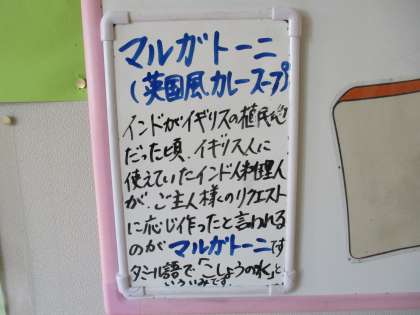 マルガトーニ
(英国風カレースープ)
インドがイギリスの植民地
だった頃、イギリス人に
使えていたインド人料理人
が、ご主人様のリクエスト
に応じ作ったと言われる
のがマルガトーニです
タミール語で「こしょうの水」と
いういみです。